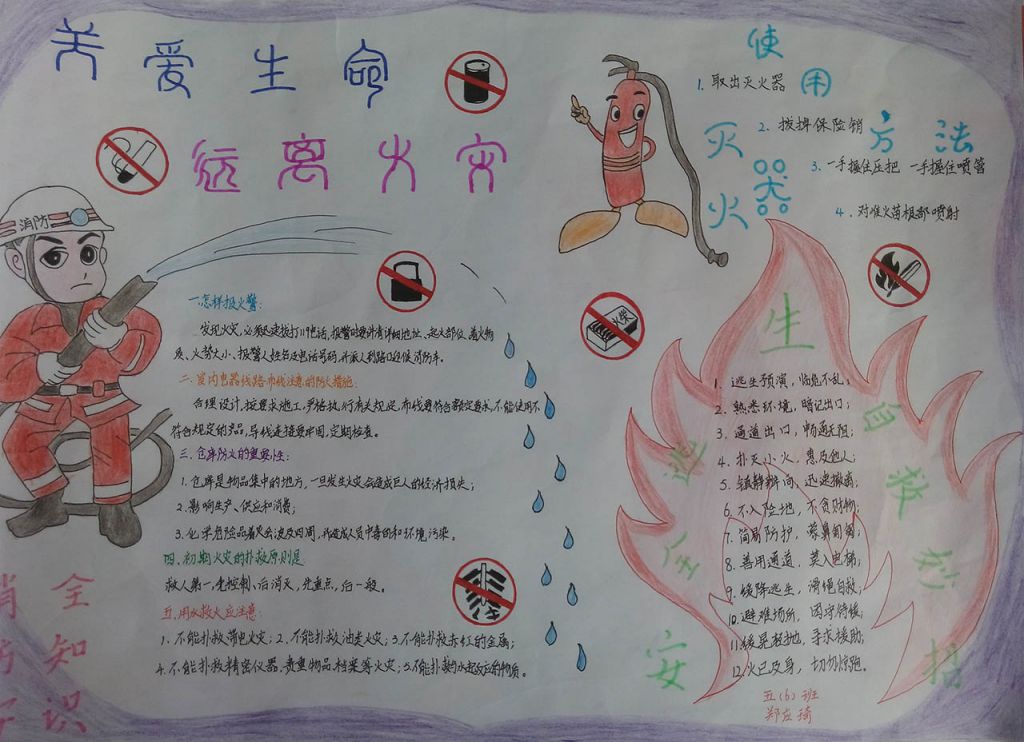 关爱生命
远离火灾
消防
使用
灭火器
方法
1. 取出灭火器
2. 拔掉保险销
3. 一手握住压把 一手握住喷管
4. 对准火苗根部喷射
火柴
一.怎样报火警:
发现火灾,必须迅速拨打119电话,报警时要讲清详细地址、起火部位、着火物
质、火势大小、报警人姓名及电话号码,并派人到路口迎候消防车。
二.室内电器线路布线注意的防火措施:
合理设计,按要求施工,严格执行有关规定,布线要符合额定要求,不能使用不
符合规定的产品,导线连接要牢固,定期检查。
三.仓库防火的重要性:
1.仓库是物品集中的地方,一旦发生火灾会造成巨大的经济损失;
2.影响生产、供应和消费;
3.化学危险品着火会波及四周,并造成人员中毒和环境污染。
四.初期火灾的扑救原则是
救人第一,先控制、后消灭,先重点,后一般。
五.用水救火应注意:
1.不能扑救带电火灾;2.不能扑救油类火灾;3.不能扑救赤红的金属;
4.不能扑救精密仪器、贵重物品档案等火灾;5.不能扑救与水起反应的物质。
安全逃生
自救妙招
1、逃生预演,临危不乱;
2、熟悉环境,暗记出口;
3、通道出口,畅通无阻;
4、扑灭小火,惠及他人;
5、镇静辨向,迅速撤离;
6、不入险地,不贪财物;
7、简易防护,蒙鼻匍匐;
8、善用通道,莫入电梯;
9、缓降逃生,滑绳自救;
10.避难场所,固守待援;
11.缓晃轻抛,寻求援助;
12.火已及身,切勿惊跑。
消防安全知识
五(6)班
郑应琦